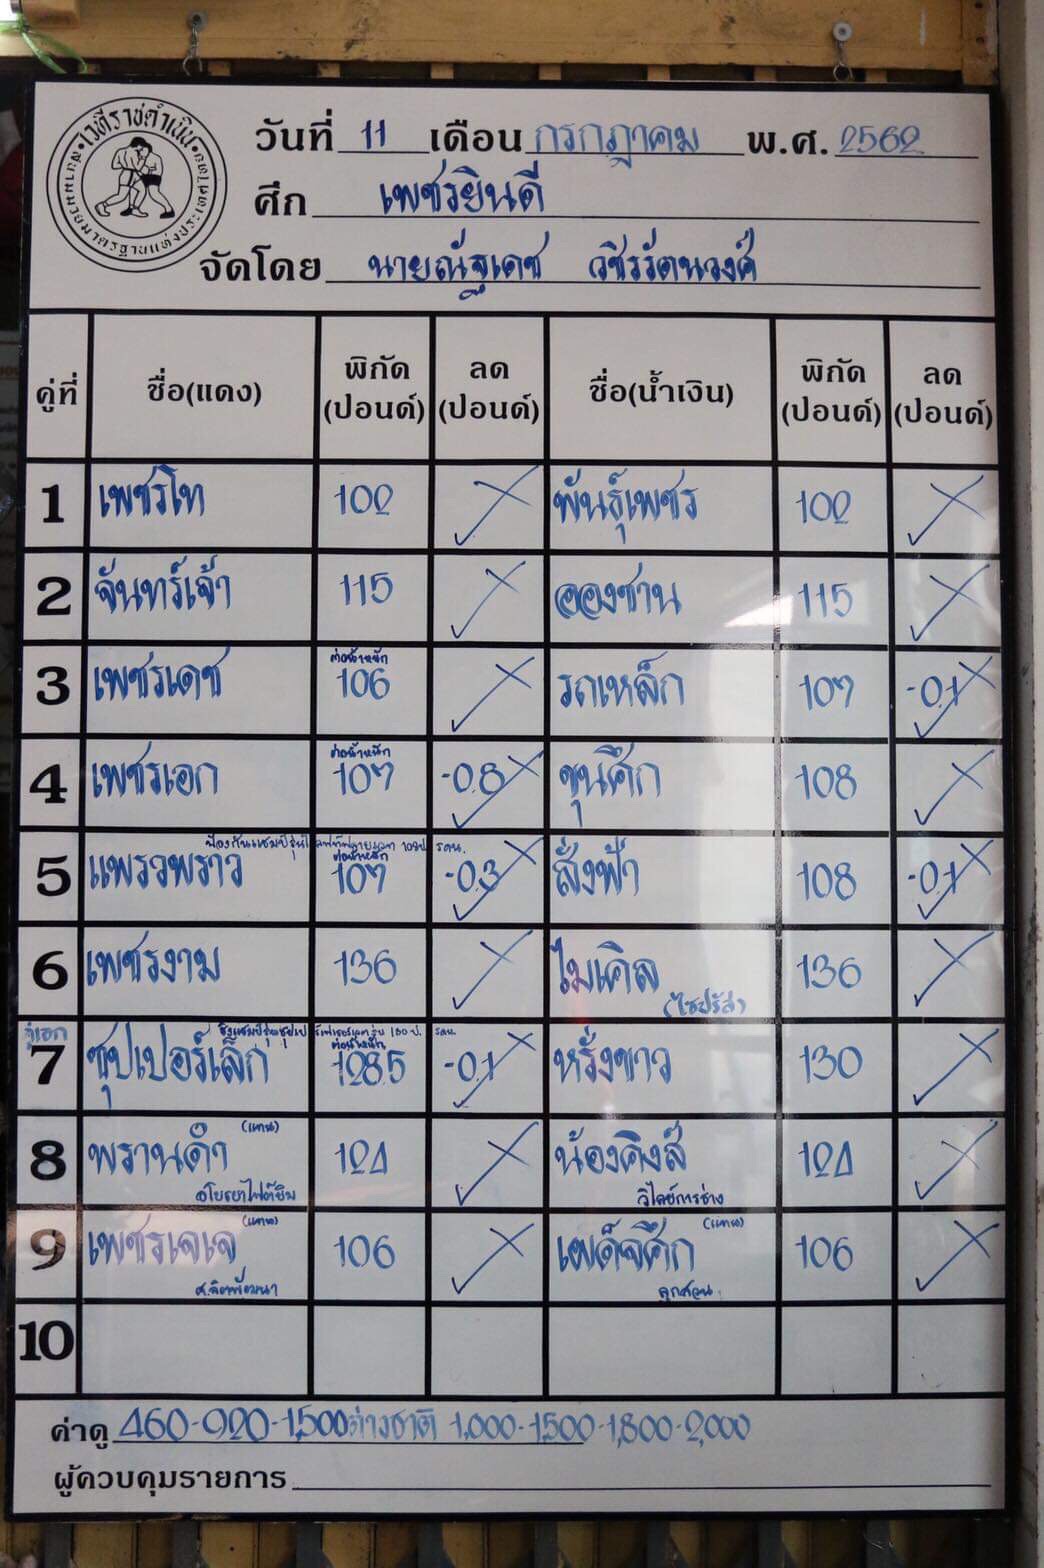 เวทีราชดำเนิน
วันที่ 11 เดือน กรกฎาคม พ.ศ. 2562
ศึก เพชรยินดี
จัดโดย นายณัฐเดช วชิรรัตนวงศ์
คู่ที่ ชื่อ(แดง) พิกัด (ปอนด์) ลด (ปอนด์) ชื่อ(น้ำเงิน) พิกัด (ปอนด์) ลด (ปอนด์)
1 เพชรโท 102 พันธุ์เพชร 102
2 จันทร์เจ้า 115 อองซาน 115
ต่อน้ำหนัก
3 เพชรเดช 106 รถเหล็ก 107 -0.1
ต่อน้ำหนัก
4 เพชรเอก 107 -0.8 ขุนศึก 108
ต่อน้ำหนัก
5 แพรวพราว 107 -0.3 สั่งฟ้า 108 -0.1
6 เพชรงาม 136 ไมเคิล 136
(ไซปรัส)
คู่เอก
ต่อน้ำหนัก
7 ซุปเปอร์เล็ก 128.5 -0.1 หรั่งขาว 130
8 พรานดำ (แทน) 124 น้องคิงส์ 124
9 เพชรเจเจ (แทน) 106 เผด็จศึก (แทน) 106
10
ค่าดู 460-920-1,500 ต่างชาติ 1,000-1,500-1,800-2,000
ผู้ควบคุมรายการ